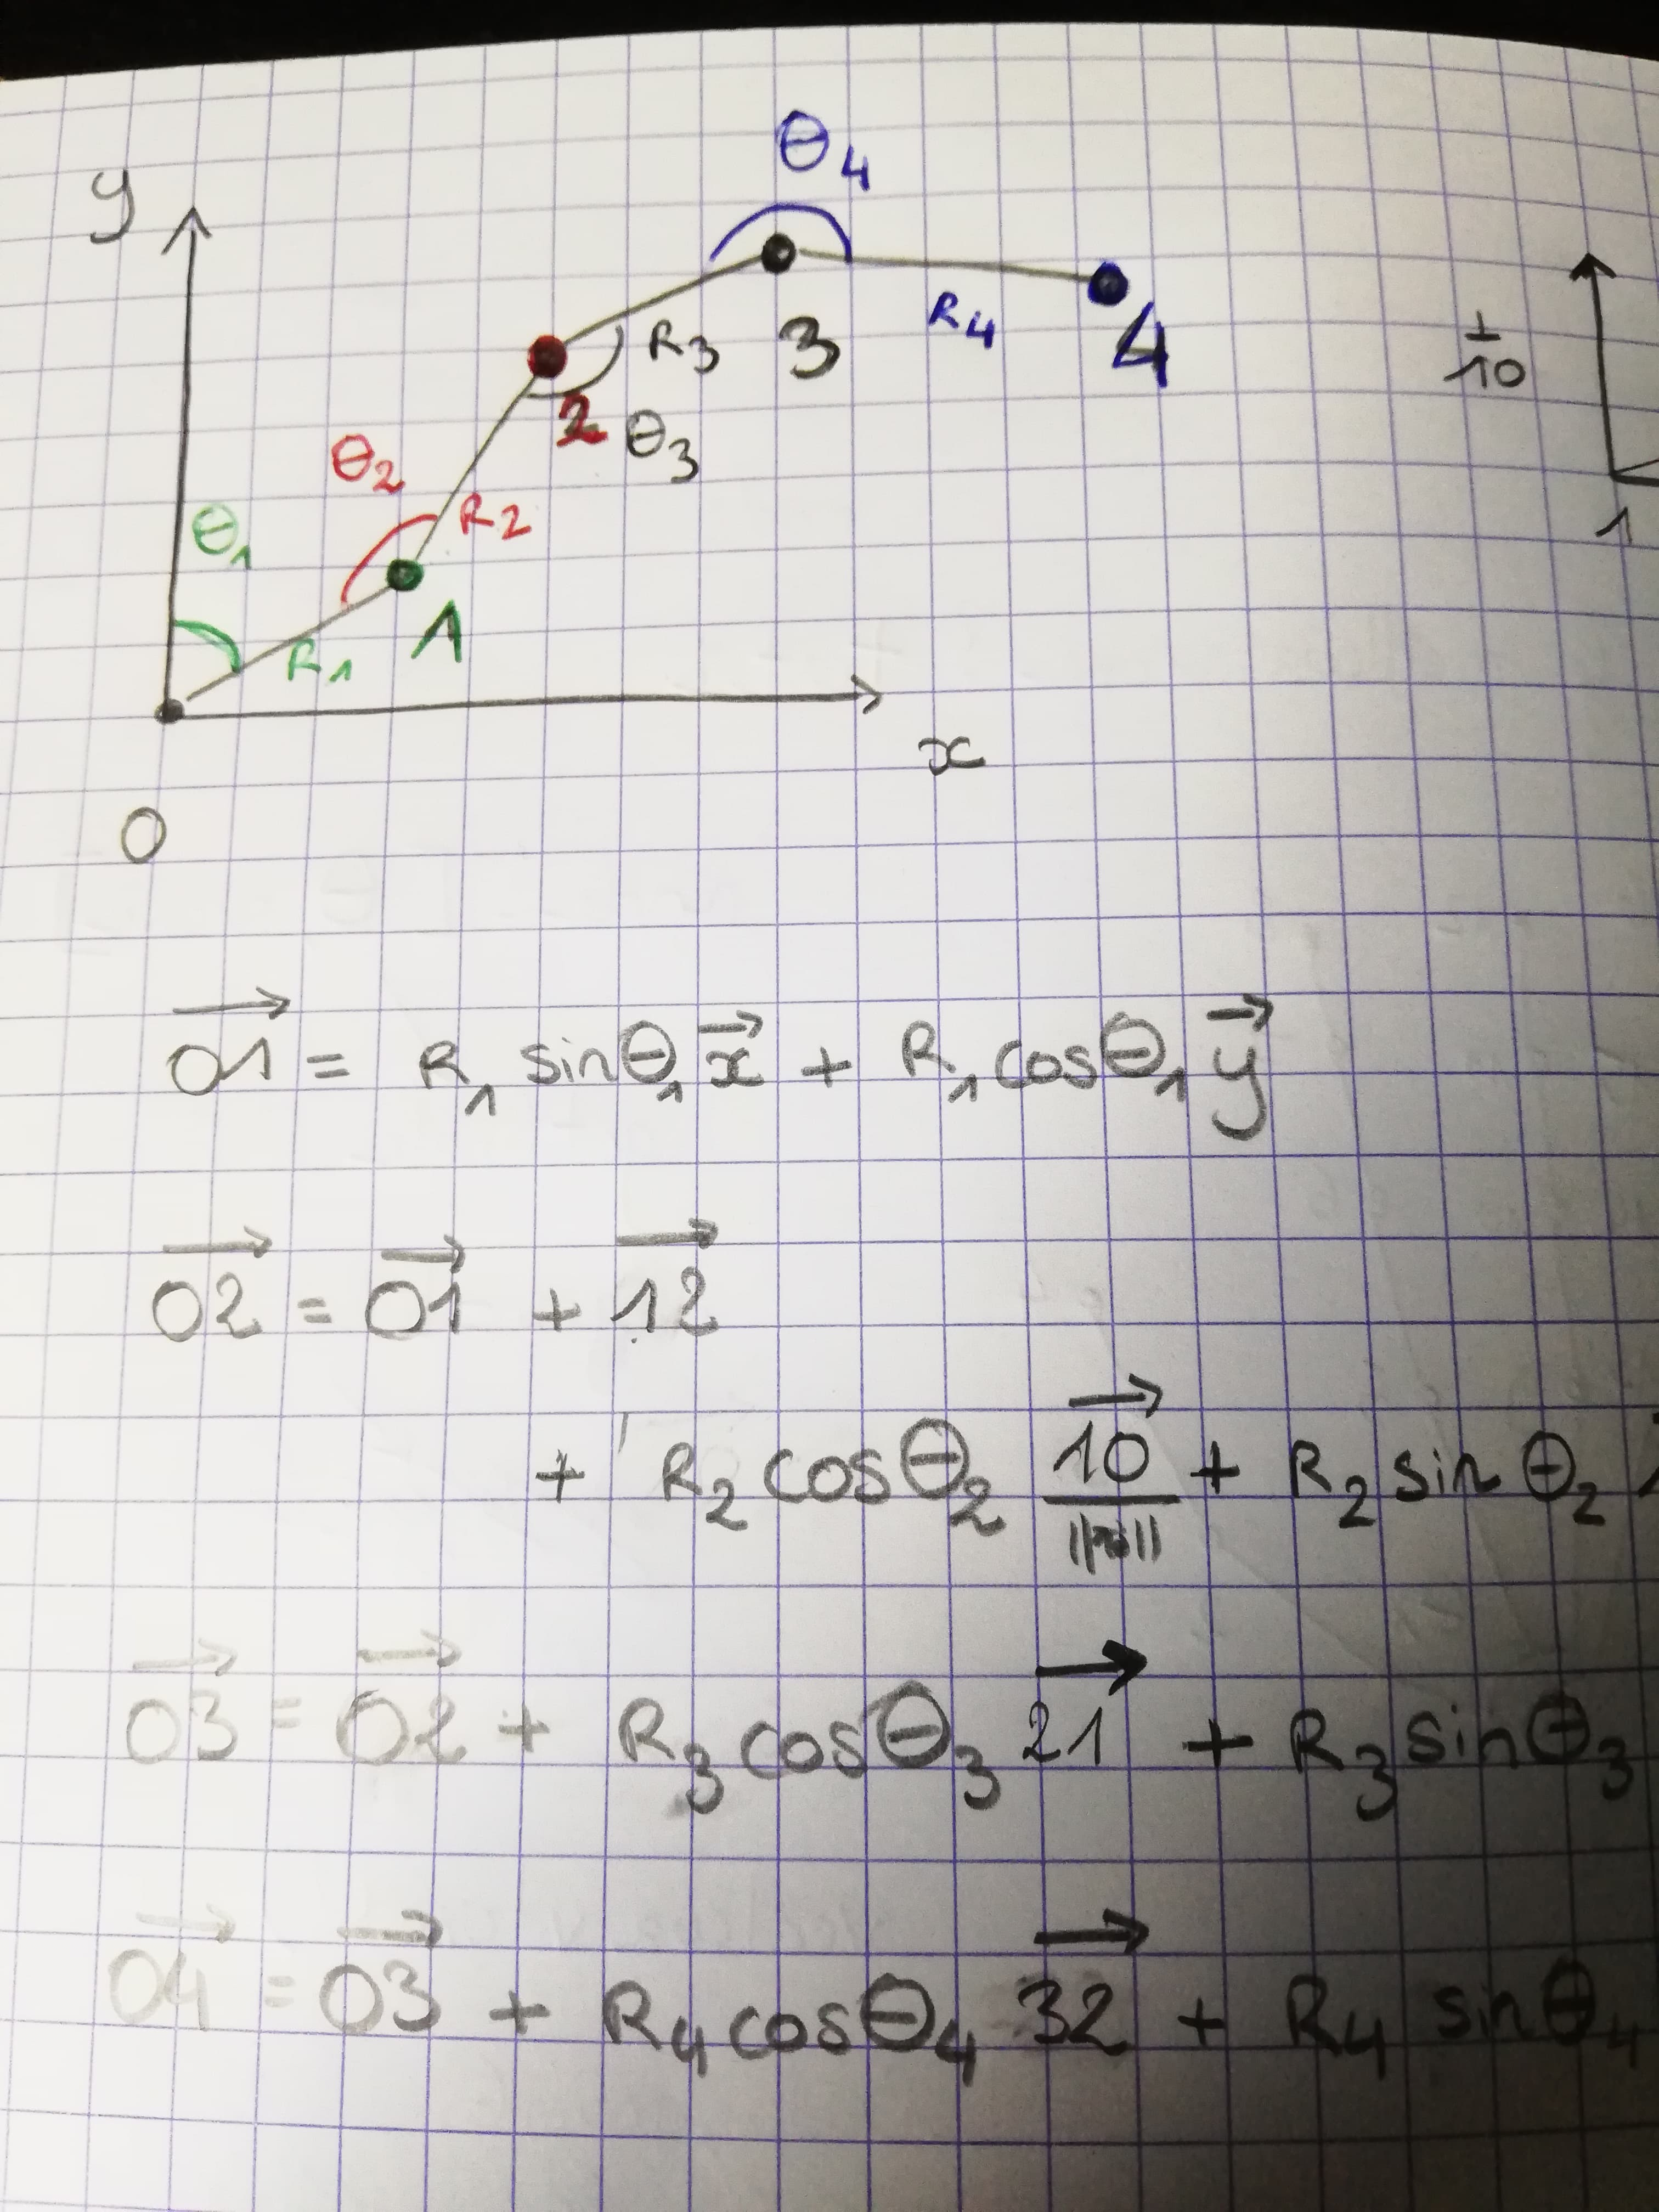 y
θ₄
R₄
4
R₃
3
2
θ₃
θ₂
R₂
θ₁
R₁
1
x
O
⊥
10
1
O1⃗ = R₁ sinθ₁ x⃗ + R₁ cosθ₁ y⃗
O2⃗ = O1⃗ + 12⃗
+ R₂ cosθ₂ 10⃗ + R₂ sin θ₂
O3⃗ = O2⃗ + R₃ cosθ₃ 21⃗ + R₃ sinθ₃
O4⃗ = O3⃗ + R₄ cosθ₄ 32⃗ + R₄ sinθ₄